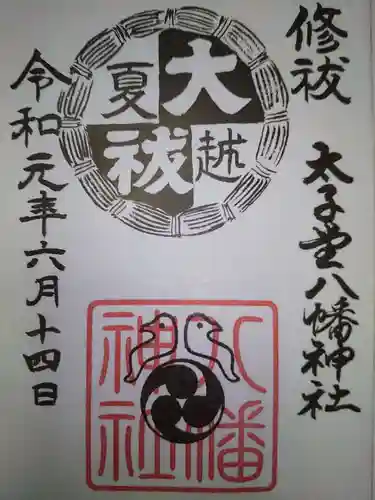 修祓
太子堂八幡神社
大祓
夏越
八幡
神社
令和元年六月十四日